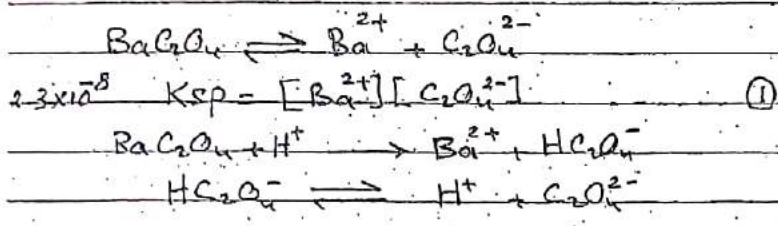 BaC₂O₄ ⇌ Ba²⁺ + C₂O₄²⁻
2.3x10⁻⁸ Ksp = [Ba²⁺][C₂O₄²⁻] ①
BaC₂O₄ + H⁺ → Ba²⁺ + HC₂O₄⁻
HC₂O₄⁻ ⇌ H⁺ + C₂O₄²⁻